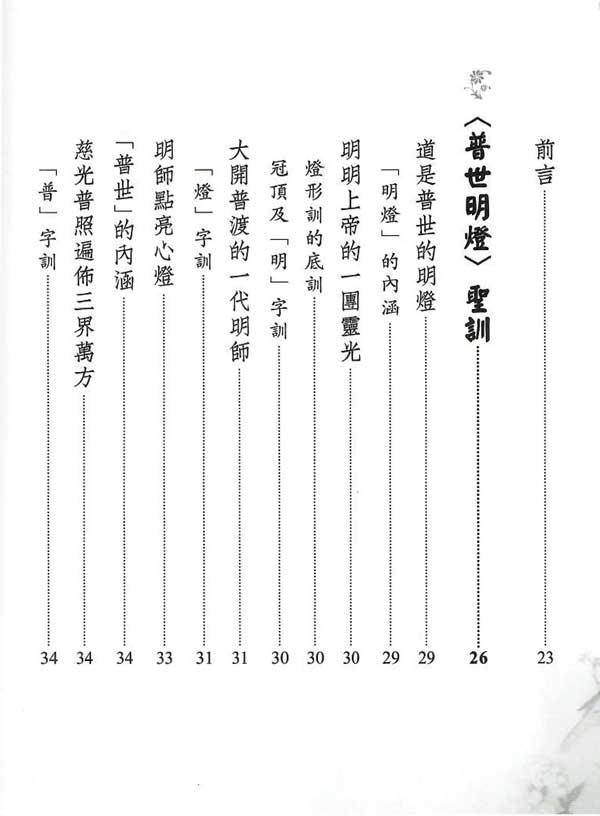 前言 23
〈普世明燈〉聖訓 26
道是普世的明燈 29
「明燈」的內涵 29
明明上帝的一團靈光 30
燈形訓的底訓 30
冠頂及「明」字訓 30
大開普渡的一代明師 31
「燈」字訓 31
明師點亮心燈 33
「普世」的內涵 34
慈光普照遍佈三界萬方 34
「普」字訓 34